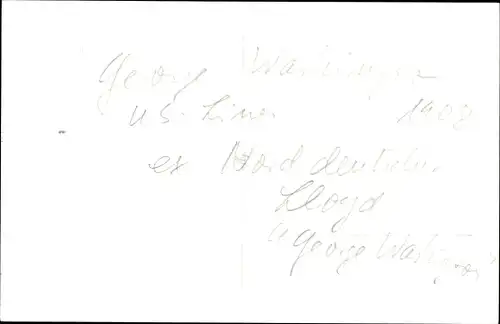 George Washington
U.S. Lines 1908
ex Norddeutscher
Lloyd
"George Washington"